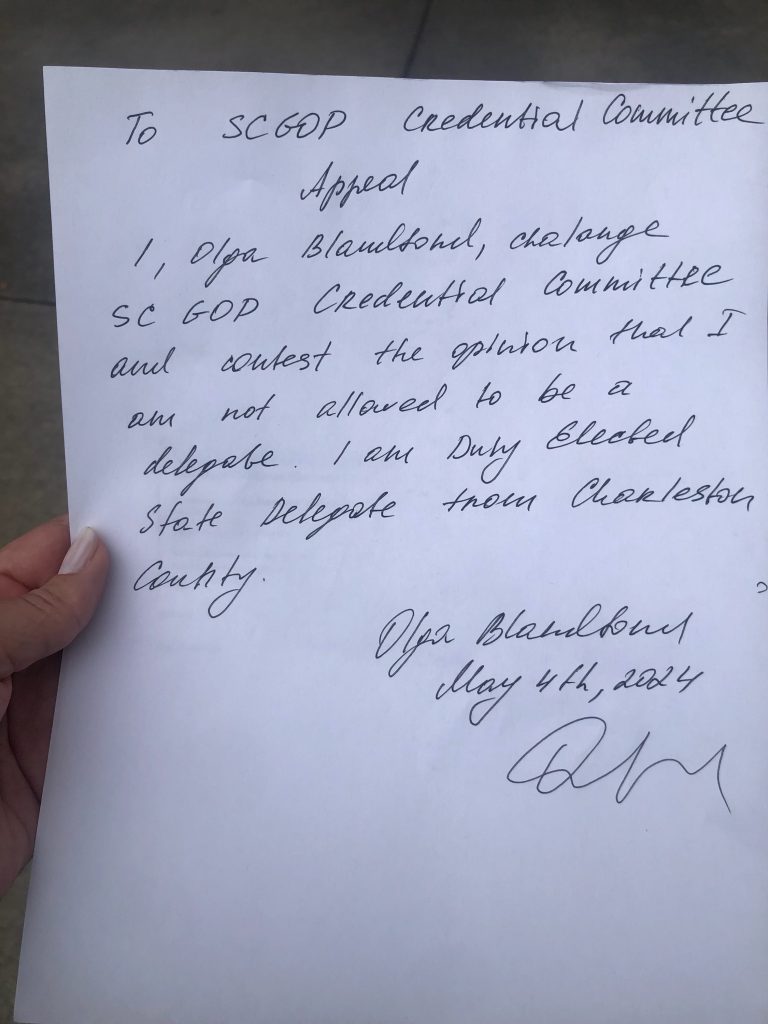 To SCGOP Credential Committee
Appeal
I, Olga Blandford, chalange
SC GOP Credential Committee
and contest the opinion that I
am not allowed to be a
delegate. I am Duty Elected
State Delegate from Charleston
County.
Olga Blandford
May 4th, 2024